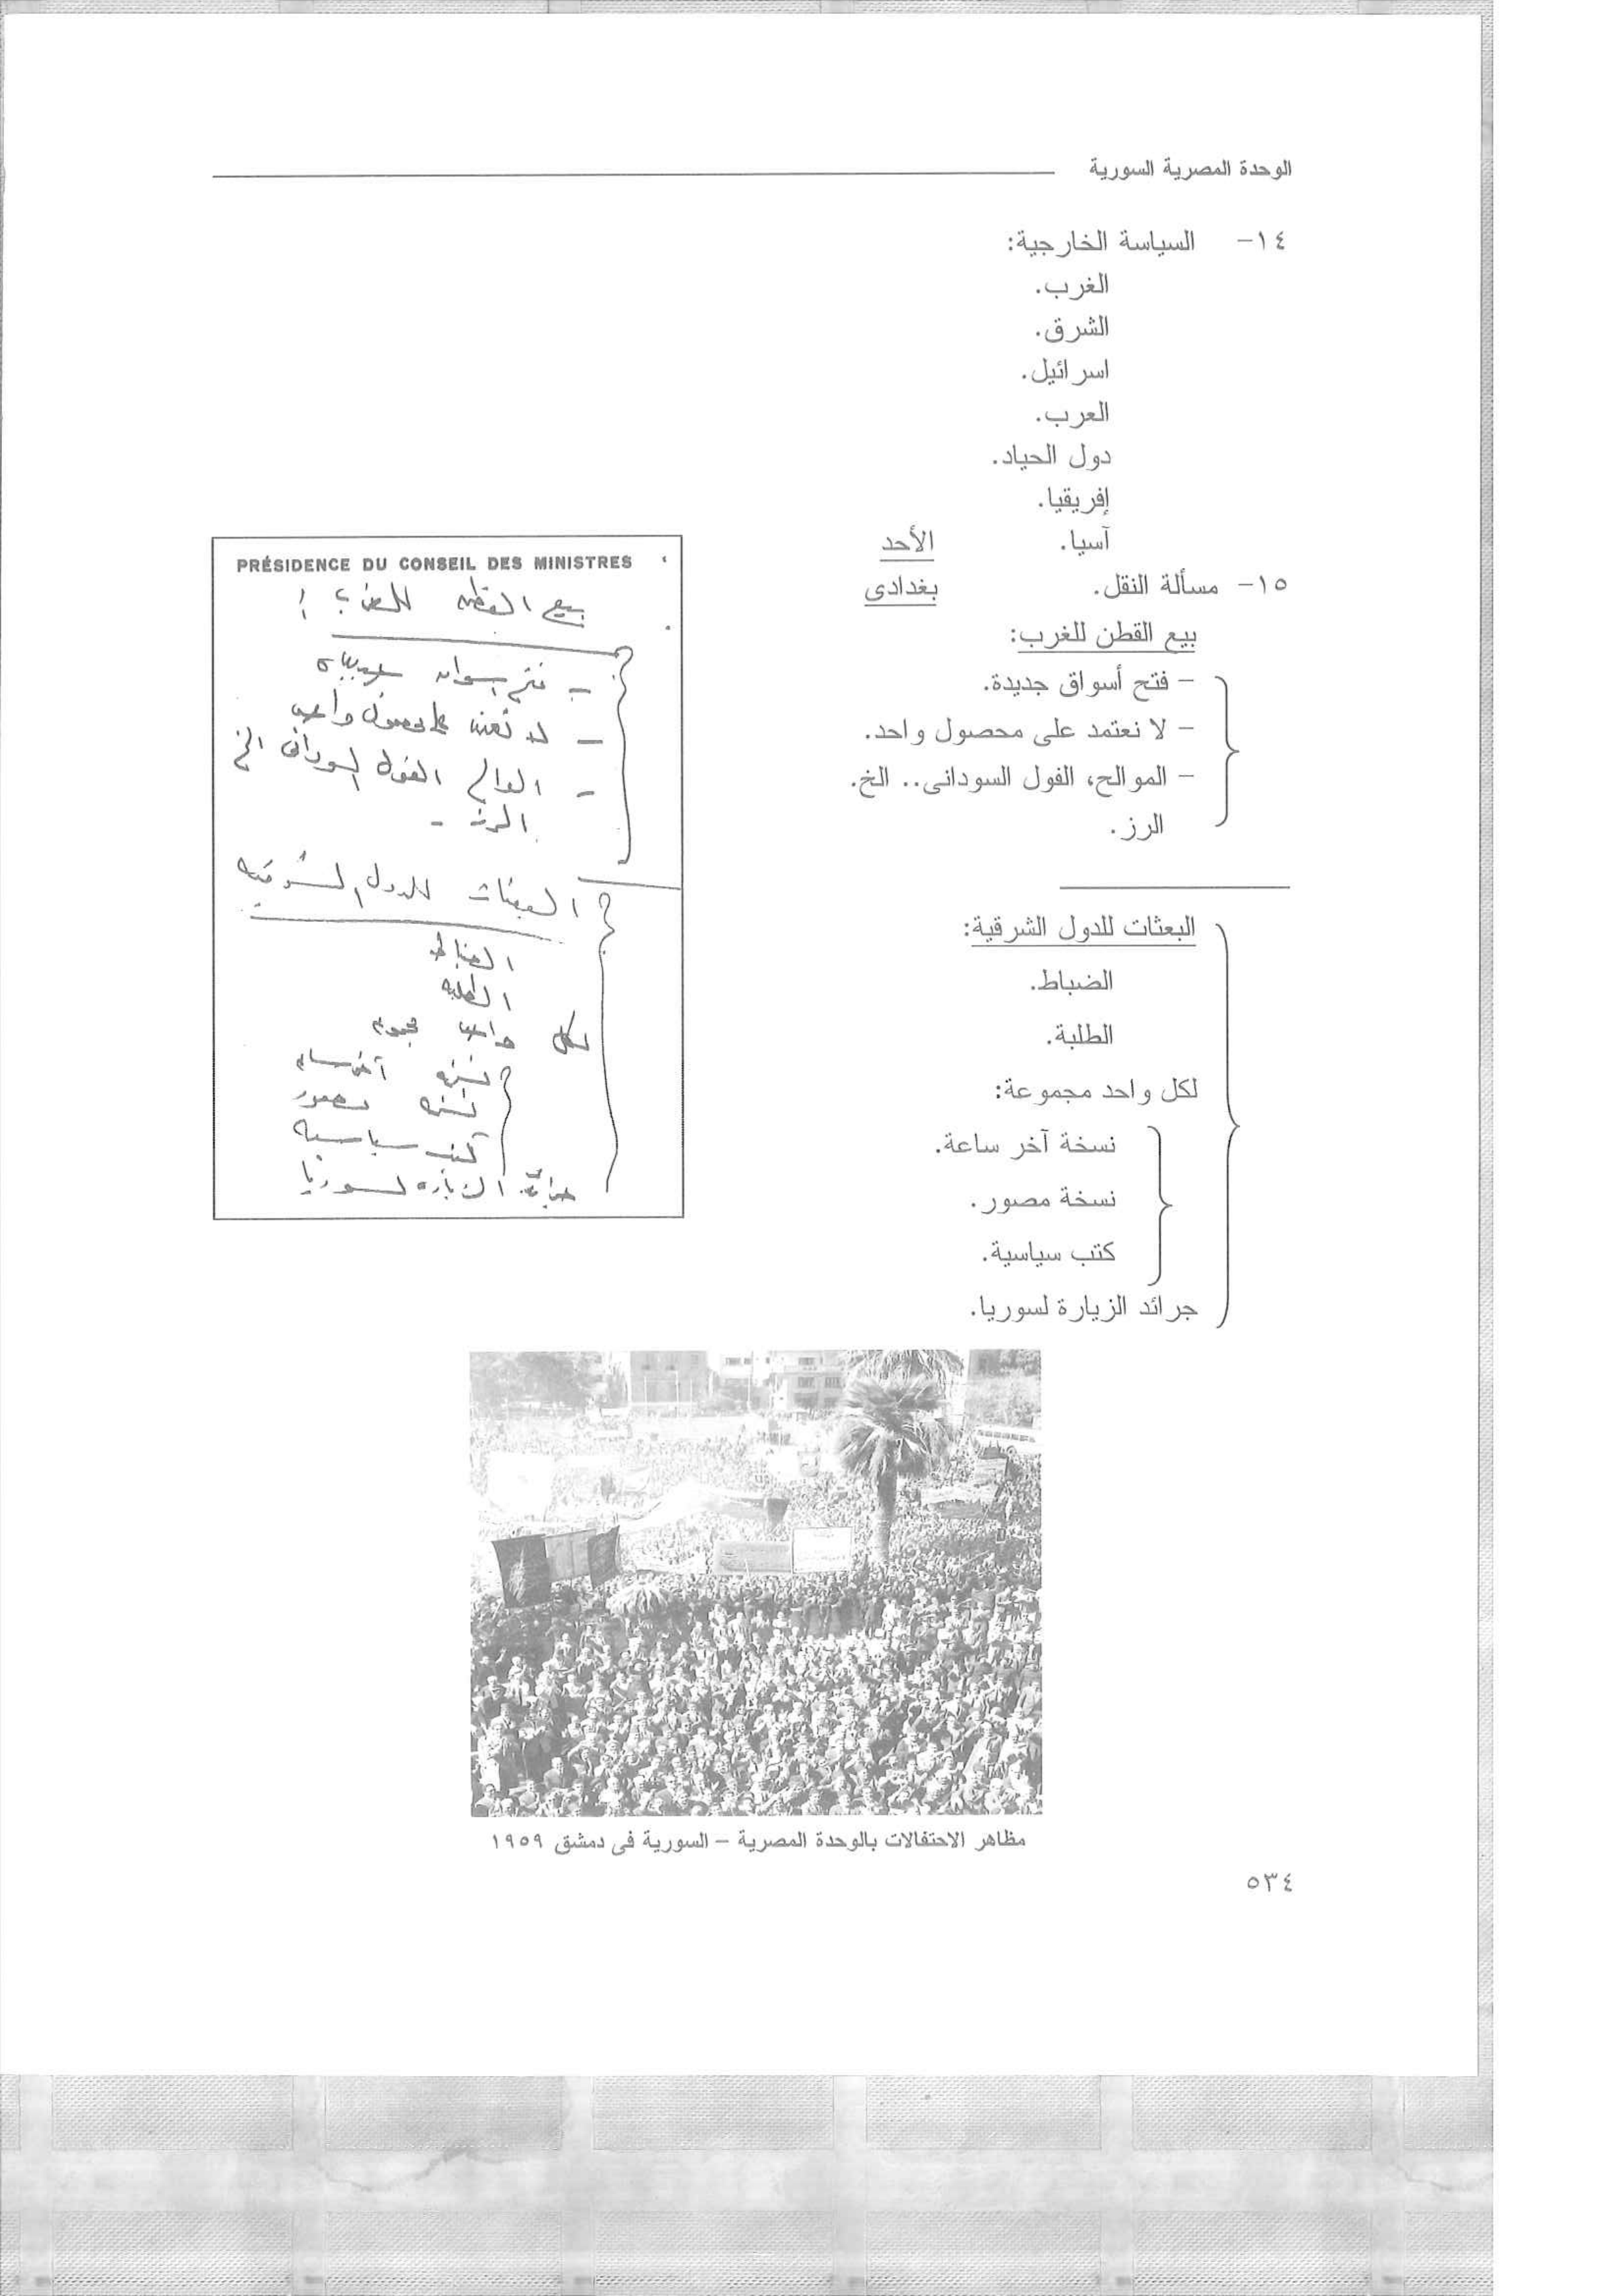 الوحدة المصرية السورية
١٤- السياسة الخارجية:
الغرب.
الشرق.
اسرائيل.
العرب.
دول الحياد.
إفريقيا.
آسيا. الأحد
١٥- مسألة النقل. بغدادى
بيع القطن للغرب:
- فتح أسواق جديدة.
- لا نعتمد على محصول واحد.
- الموالح، الفول السودانى.. الخ.
الرز.
البعثات للدول الشرقية:
الضباط.
الطلبة.
لكل واحد مجموعة:
نسخة آخر ساعة.
نسخة مصور.
كتب سياسية.
جرائد الزيارة لسوريا.
PRÉSIDENCE DU CONSEIL DES MINISTRES
بيع القطن للغرب:
- فتح اسواق جديدة
- لا نعتمد على محصول واحد
- الموالح الفول السودانى الخ
الرز -
البعثات للدول الشرقية
الضباط
الطلبة
لكل واحد مجموعة
نسخة آخر ساعة
نسخة مصور
كتب سياسية
جرائد الزيارة لسوريا
مظاهر الاحتفالات بالوحدة المصرية – السورية فى دمشق ١٩٥٩
٥٣٤